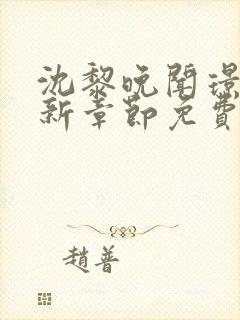 沈黎晚聞璟
新章節免費
趙普